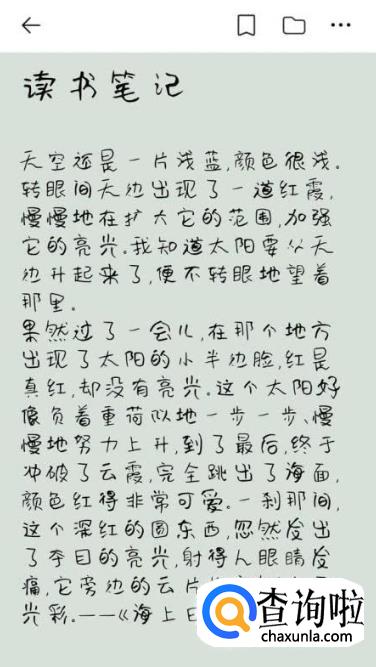 读书笔记
天空还是一片浅蓝,颜色很浅。
转眼间天边出现了一道红霞,
慢慢地在扩大它的范围,加强
它的亮光。我知道太阳要从天
边升起来了,便不转眼地望着
那里。
果然过了一会儿,在那个地方
出现了太阳的小半边脸,红是
真红,却没有亮光。这个太阳好
像负着重荷似地一步一步、慢
慢地努力上升,到了最后,终于
冲破了云霞,完全跳出了海面,
颜色红得非常可爱。一刹那间,
这个深红的圆东西,忽然发出
了夺目的亮光,射得人眼睛发
痛,它旁边的云片
光彩。——《海上日
查询啦
chaxunla.com